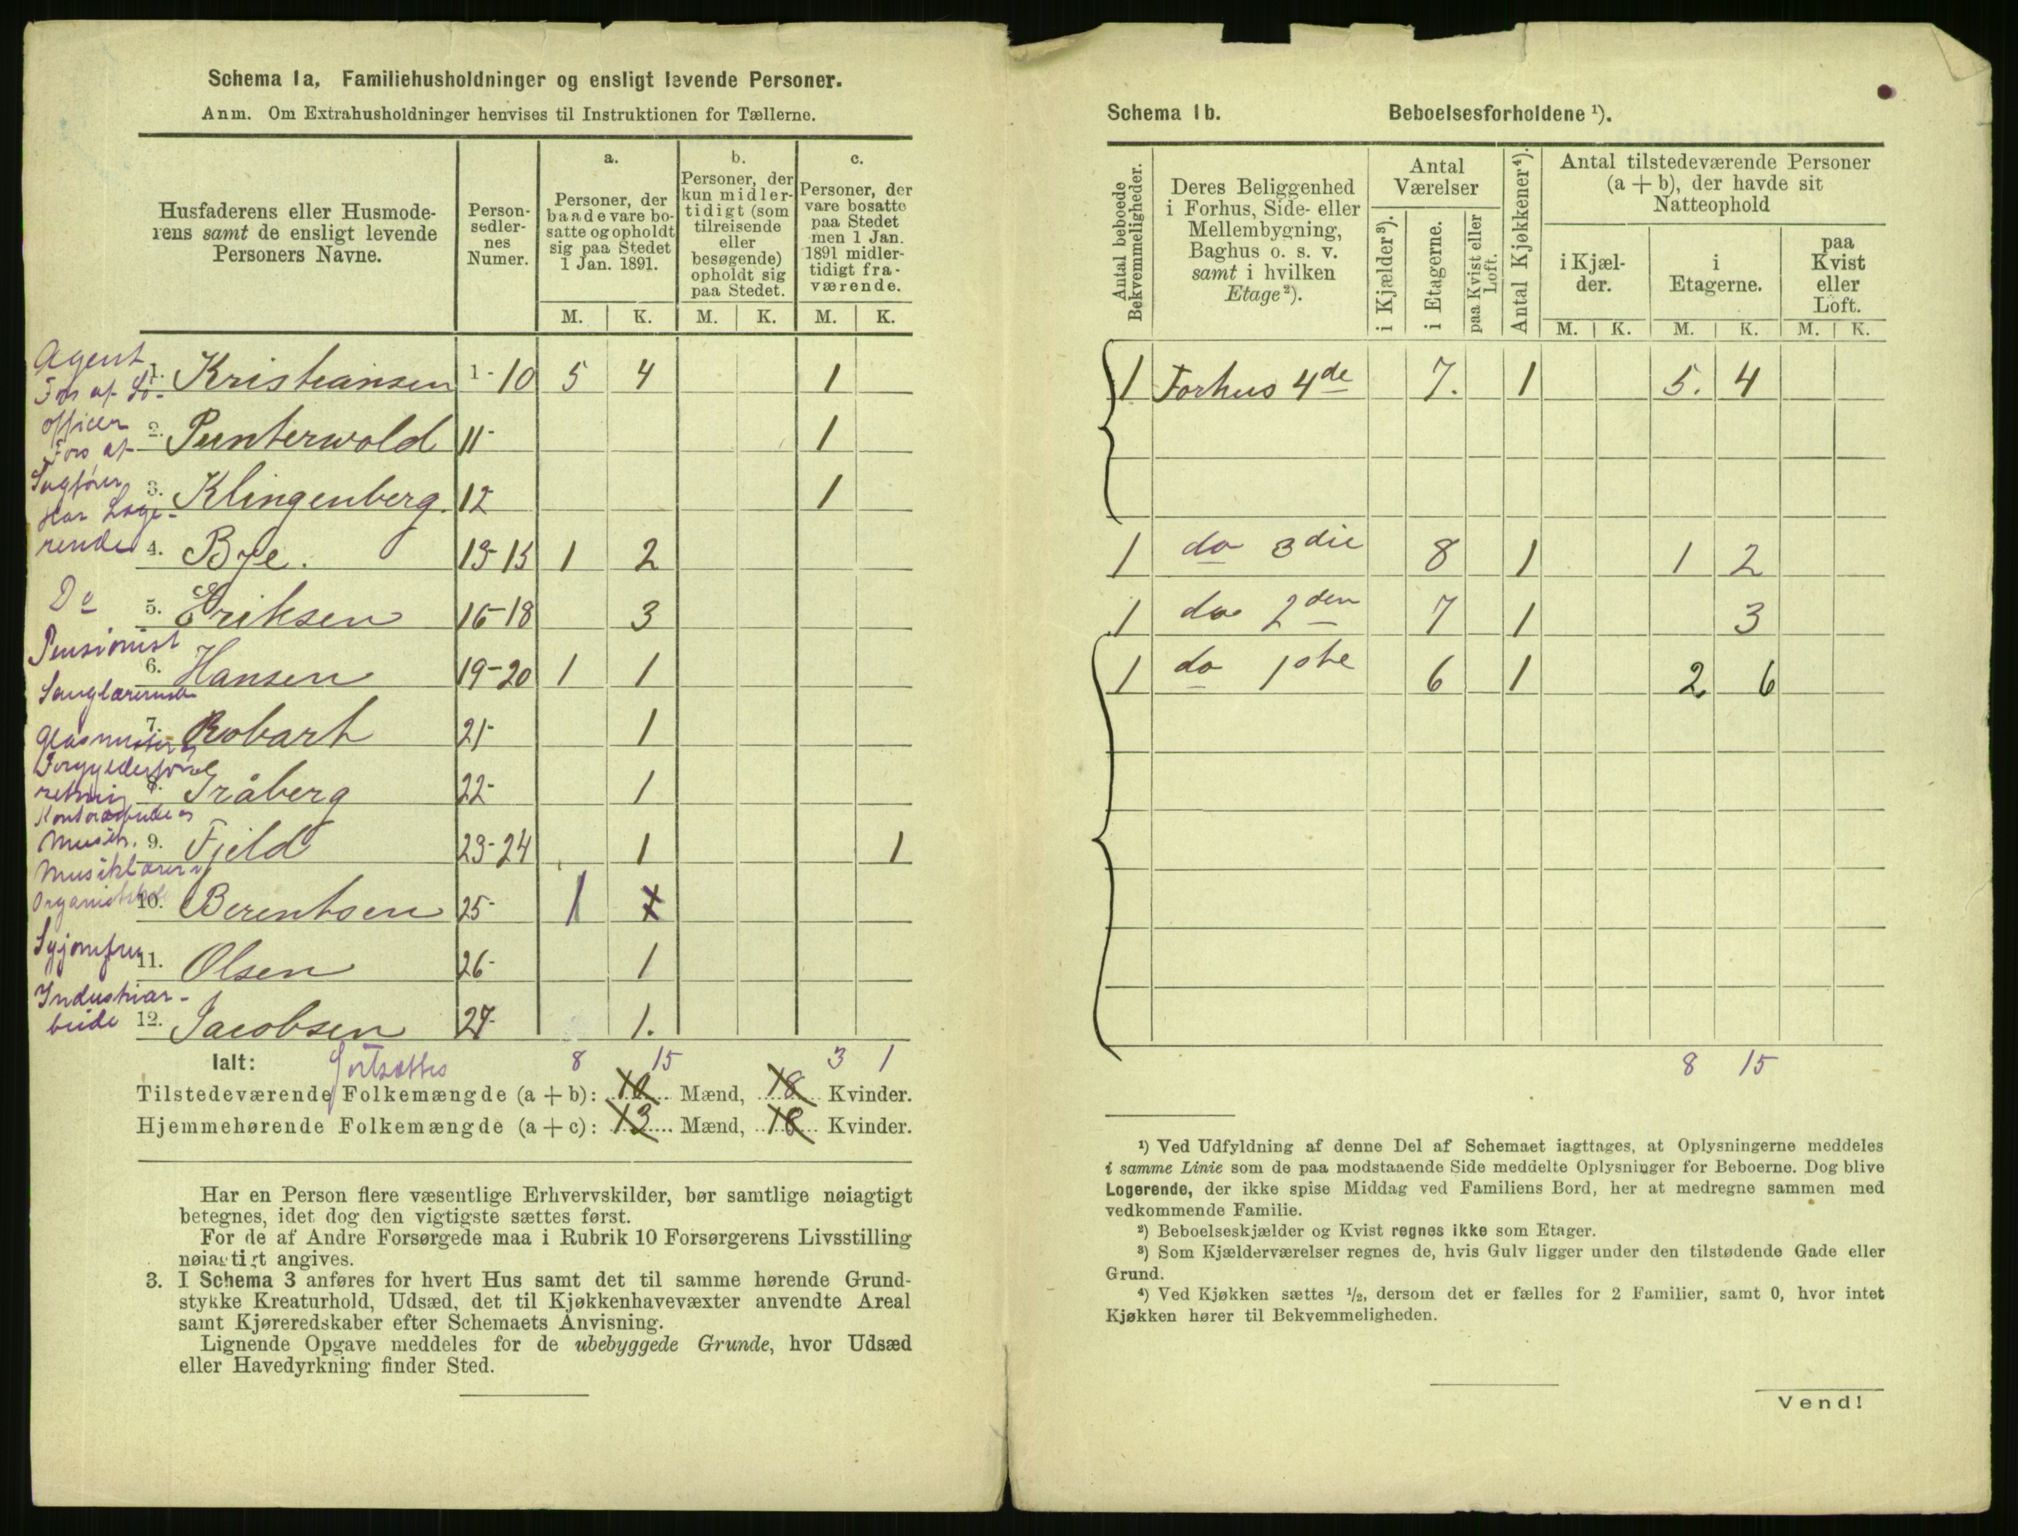 Schema 1a, Familiehusholdninger og ensligt levende Personer.
Anm. Om Extrahusholdninger henvises til Instruktionen for Tællerne.
Husfaderens eller Husmode-
rens samt de ensligt levende
Personers Navne.
Person-
sedler-
nes
Numer.
a.
Personer, der
baade vare bo-
satte og opholdt
sig paa Stedet
1 Jan. 1891.
b.
Personer, der
kun midler-
tidigt (som
tilreisende
eller
besøgende)
opholdt sig
paa Stedet.
c.
Personer, der
vare bosatte
paa Stedet
men 1 Jan.
1891 midler-
tidigt fra-
værende.
M. K. M. K. M. K.
Agent
1. Kristiansen 1-10 5 4 1
Fors af So-
officer
2. Punterwold 11- 1
Fors af
Sagfører
3. Klingenberg. 12 1
Har Loge-
rende
4. Bye. 13-15 1 2
Do
5. Eriksen 16-18 3
Pensionist
6. Hansen 19-20 1 1
Sanglærerinde
7. Robart 21- 1
Glasmester og
Forgylderfor-
retning
8. Tråberg 22- 1
Kontorarbeide og
Musik.
9. Fjeld 23-24 1 1
Musiklærer
Organist
10. Berentsen 25- 1
Syjomfru
11. Olsen 26- 1
Industriar-
beide
12. Jacobsen 27- 1.
Ialt: Fortsættes 8 15 3 1
Tilstedeværende Folkemængde (a + b): 10 Mænd, 18 Kvinder.
Hjemmehørende Folkemængde (a + c): 13 Mænd, 18 Kvinder.
Har en Person flere væsentlige Erhvervskilder, bør samtlige nøiagtigt
betegnes, idet dog den vigtigste sættes først.
For de af Andre Forsørgede maa i Rubrik 10 Forsørgerens Livsstilling
nøiagtigt angives.
3. I Schema 3 anføres for hvert Hus samt det til samme hørende Grund-
stykke Kreaturhold, Udsæd, det til Kjøkkenhavevæxter anvendte Areal
samt Kjøreredskaber efter Schemaets Anvisning.
Lignende Opgave meddeles for de ubebyggede Grunde, hvor Udsæd
eller Havedyrkning finder Sted.
Schema 1b. Beboelsesforholdene ¹).
Antal beboede
Bekvemmeligheder.
Deres Beliggenhed
i Forhus, Side- eller
Mellembygning,
Baghus o. s. v.
samt i hvilken
Etage²).
Antal
Værelser
i Kjælder³).
i Etagerne.
paa Kvist eller
Loft.
Antal Kjøkkener⁴).
Antal tilstedeværende Personer
(a + b), der havde sit
Natteophold
i Kjæl-
der.
i
Etagerne.
paa
Kvist
eller
Loft.
M. K. M. K. M. K.
1 Forhus 4de 7. 1 5. 4
1 do 3die 8 1 1 2
1 do 2den 7 1 3
1 do 1ste 6 1 2 6
8 15
¹) Ved Udfyldning af denne Del af Schemaet iagttages, at Oplysningerne meddeles
i samme Linie som de paa modstaaende Side meddelte Oplysninger for Beboerne. Dog blive
Logerende, der ikke spise Middag ved Familiens Bord, her at medregne sammen med
vedkommende Familie.
²) Beboelseskjælder og Kvist regnes ikke som Etager.
³) Som Kjælderværelser regnes de, hvis Gulv ligger under den tilstødende Gade eller
Grund.
⁴) Ved Kjøkken sættes ½, dersom det er fælles for 2 Familier, samt 0, hvor intet
Kjøkken hører til Bekvemmeligheden.
Vend!